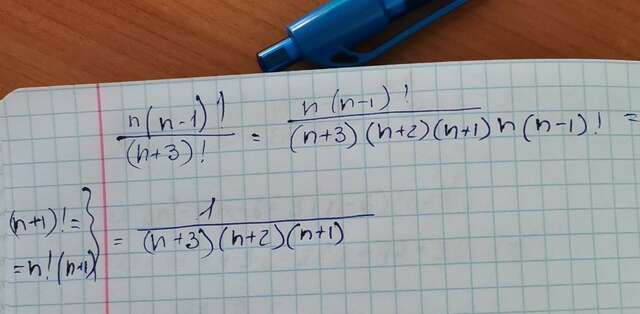 n(n-1)!/(n+3)! = n(n-1)!/(n+3)(n+2)(n+1)n(n-1)! =
(n+1)! = } = 1/(n+3)(n+2)(n+1)
= n!(n+1)